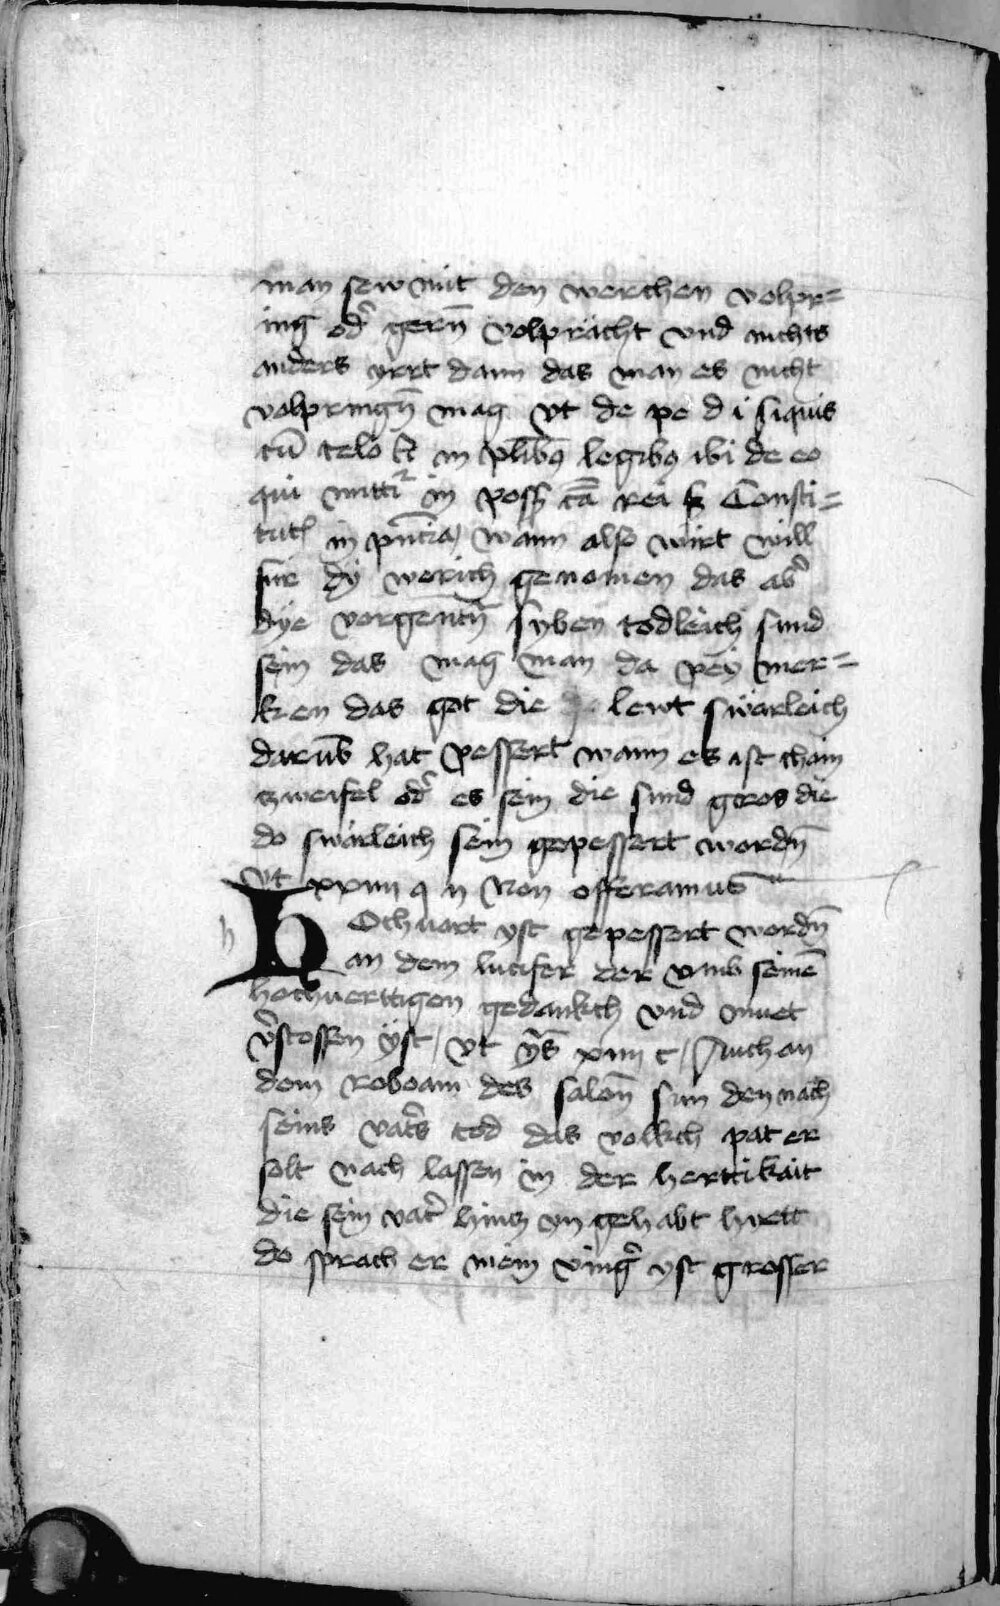 man sew mit den werchen volpr=
ing od̕ gern̄ volpracht vnd nichts
anders yrrt dann das man es nicht
volpringn̄ mag vt de pe d i siquis
cū telo in pl̄ibꝫ legibꝫ ibi de eo
qui mitti in poss cā rei Consti=
tut in pn̄cia wann also wirt will
fur dy werich genomen das ab̕
dye vorgentn̄ syben todleich sund
sein das mag man da pey mer=
ken das got die lewt swarleich
darūb hat pessert wann es ist chain
zweifel od̕ es sein die sund gros die
do swarleich sein gepessert wordn̄
vt xxiiii q n Non offeramus
h
HOchuart yst gepessert wordn̄
an dem lucifer der vmb seinē
hochuerttigen gedankch vnd muet
v̕stossen yst / vt ys̄ xiiii c / Auch an
dem Roboam des salon̄ sun den nach
seins vat̕s tod das volkch pat er
solt nach lassen in der herttikait
die sein vat̕ hintz yn gehabt hiett
do sprach er mein ving̕ yst grosser